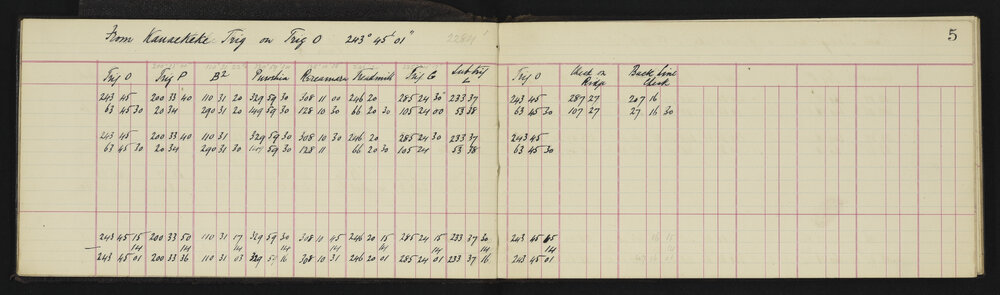 From Kanaekake Trig on Trig O 243° 45' 01"
5
Trig O Trig P B2 Trig Trig O Check on Ridge Back Line Check
243 45 200 33 40 110 31 20 329 59 30 308 11 00 246 20 285 24 30 233 37 243 45 287 27 207 16
63 45 30 20 34 290 31 20 149 59 30 128 10 30 66 20 30 105 24 00 53 38 63 45 30 107 27 27 16 30
243 45 200 33 40 110 31 329 59 30 308 10 30 246 20 285 24 30 233 37 243 45
63 45 30 20 34 290 31 30 59 30 128 11 66 20 30 105 24 53 38 63 45 30
243 45 15 200 33 50 110 31 17 329 59 30 308 11 45 246 20 15 285 24 15 233 37 30 243 45
14 14 14 14 14 14 14 14 14
243 45 01 200 33 36 110 31 03 329 59 16 308 10 31 246 20 01 285 24 01 233 37 16 243 45 01